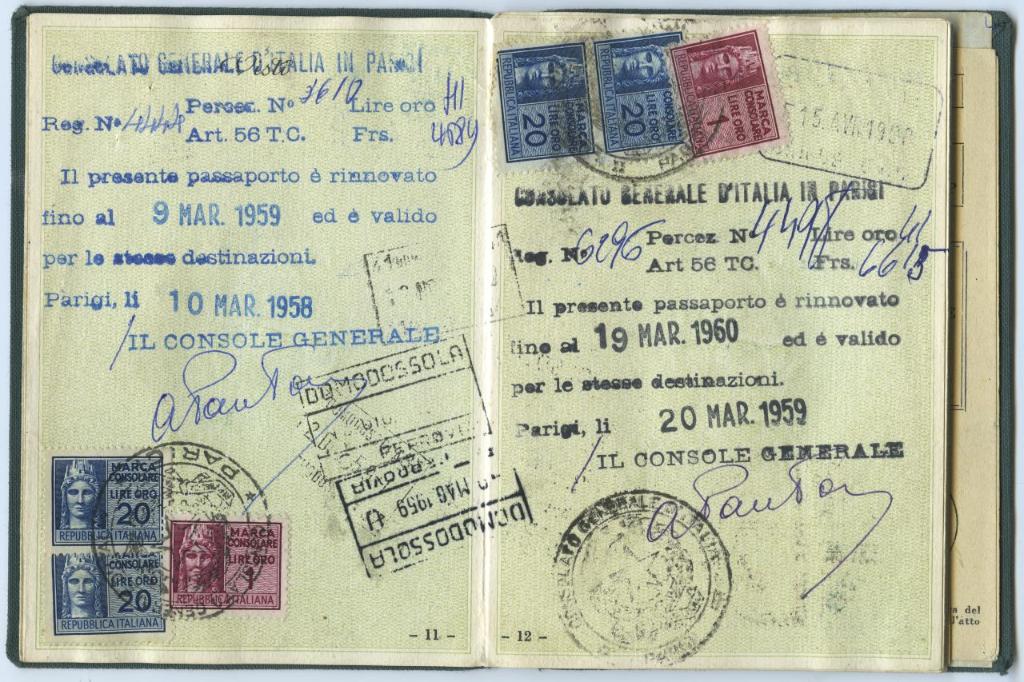 CONSOLATO GENERALE D'ITALIA IN PARIGI
Percez. Nº 3610 Lire oro 41
Reg. Nº
Art. 56 T.C. Frs. 4589
Il presente passaporto è rinnovato
fino al 9 MAR. 1959 ed è valido
per le stesse destinazioni.
Parigi, li 10 MAR. 1958
IL CONSOLE GENERALE
DOMODOSSOLA
FERROVIA
FERROVIA
MAG 1959 U
DOMODOSSOLA
MARCA
CONSOLARE
LIRE ORO
20
REPUBBLICA ITALIANA
MARCA
CONSOLARE
LIRE ORO
20
REPUBBLICA ITALIANA
MARCA
CONSOLARE
LIRE ORO
1
REPUBBLICA ITALIANA
PARIGI
- 11 -
REPUBBLICA ITALIANA
20
LIRE ORO
CONSOLARE
MARCA
REPUBBLICA ITALIANA
20
LIRE ORO
CONSOLARE
MARCA
1
LIRE ORO
CONSOLARE
MARCA
15 AVR.
CONSOLATO GENERALE D'ITALIA IN PARIGI
Reg. Nº 6296 Percez Nº Lire oro 41
Art 56 TC. Frs. 6615
Il presente passaporto è rinnovato
fino al 19 MAR. 1960 ed è valido
per le stesse destinazioni.
Parigi, li 20 MAR. 1959
IL CONSOLE GENERALE
CONSOLATO GENERALE D'ITALIA
PARIGI
- 12 -
del
l'atto